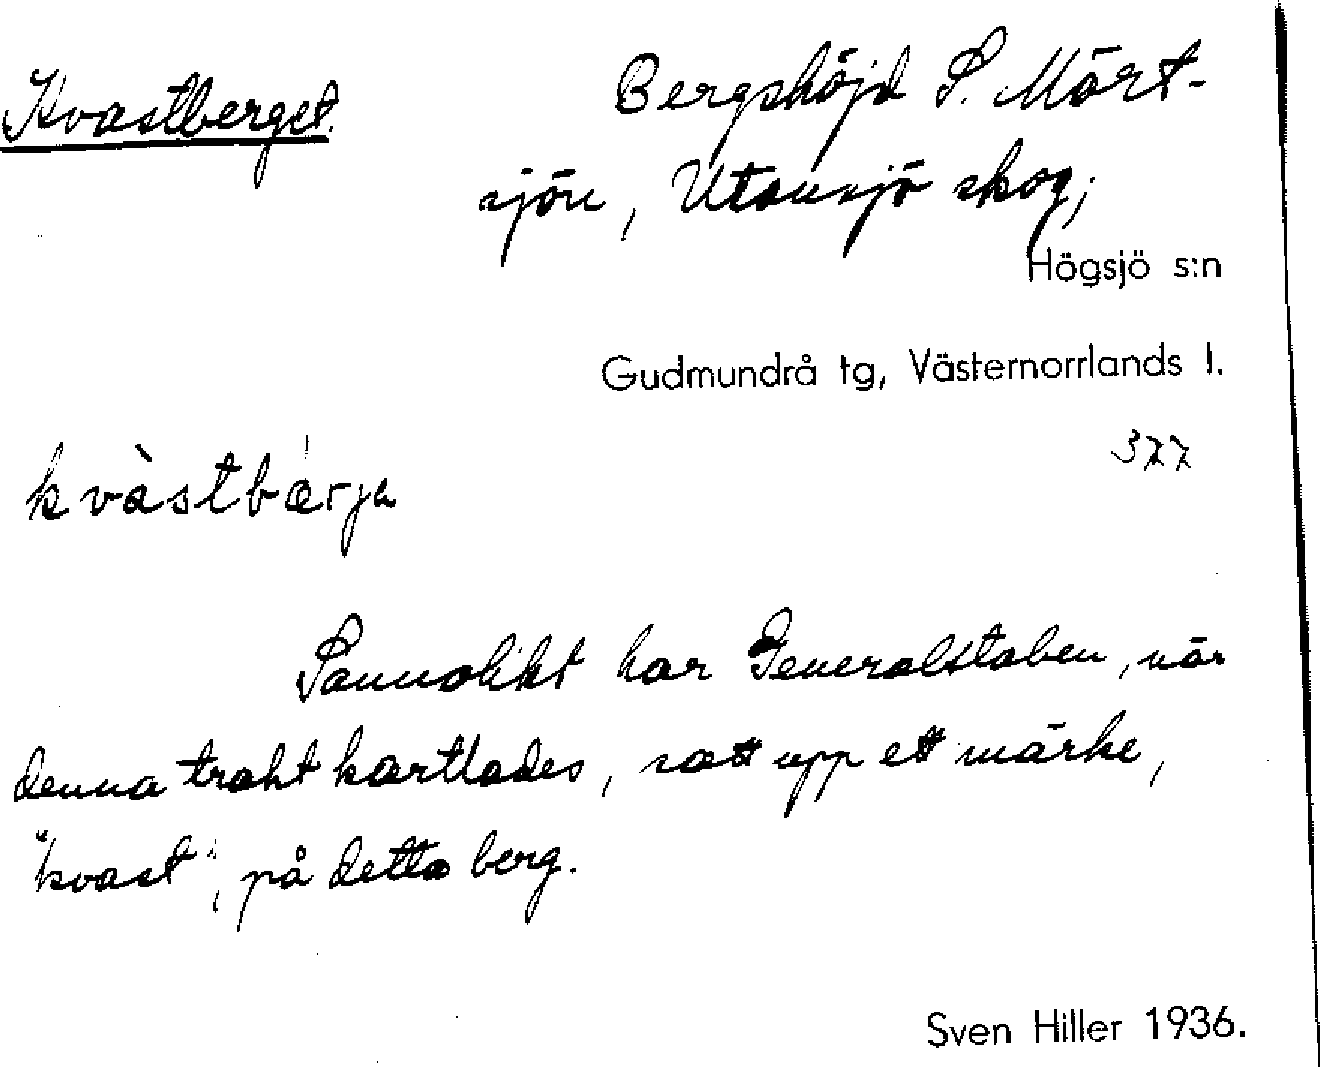 Kvastberget.
Bergshöjd S. Mört-
sjön, Utansjö skog;
Högsjö s:n
Gudmundrå tg, Västernorrlands l.
377
kvàstbærja
Sannolikt har Generalstaben, när
denna trakt kartlades, satt upp ett märke,
"kvast", på detta berg.
Sven Hiller 1936.